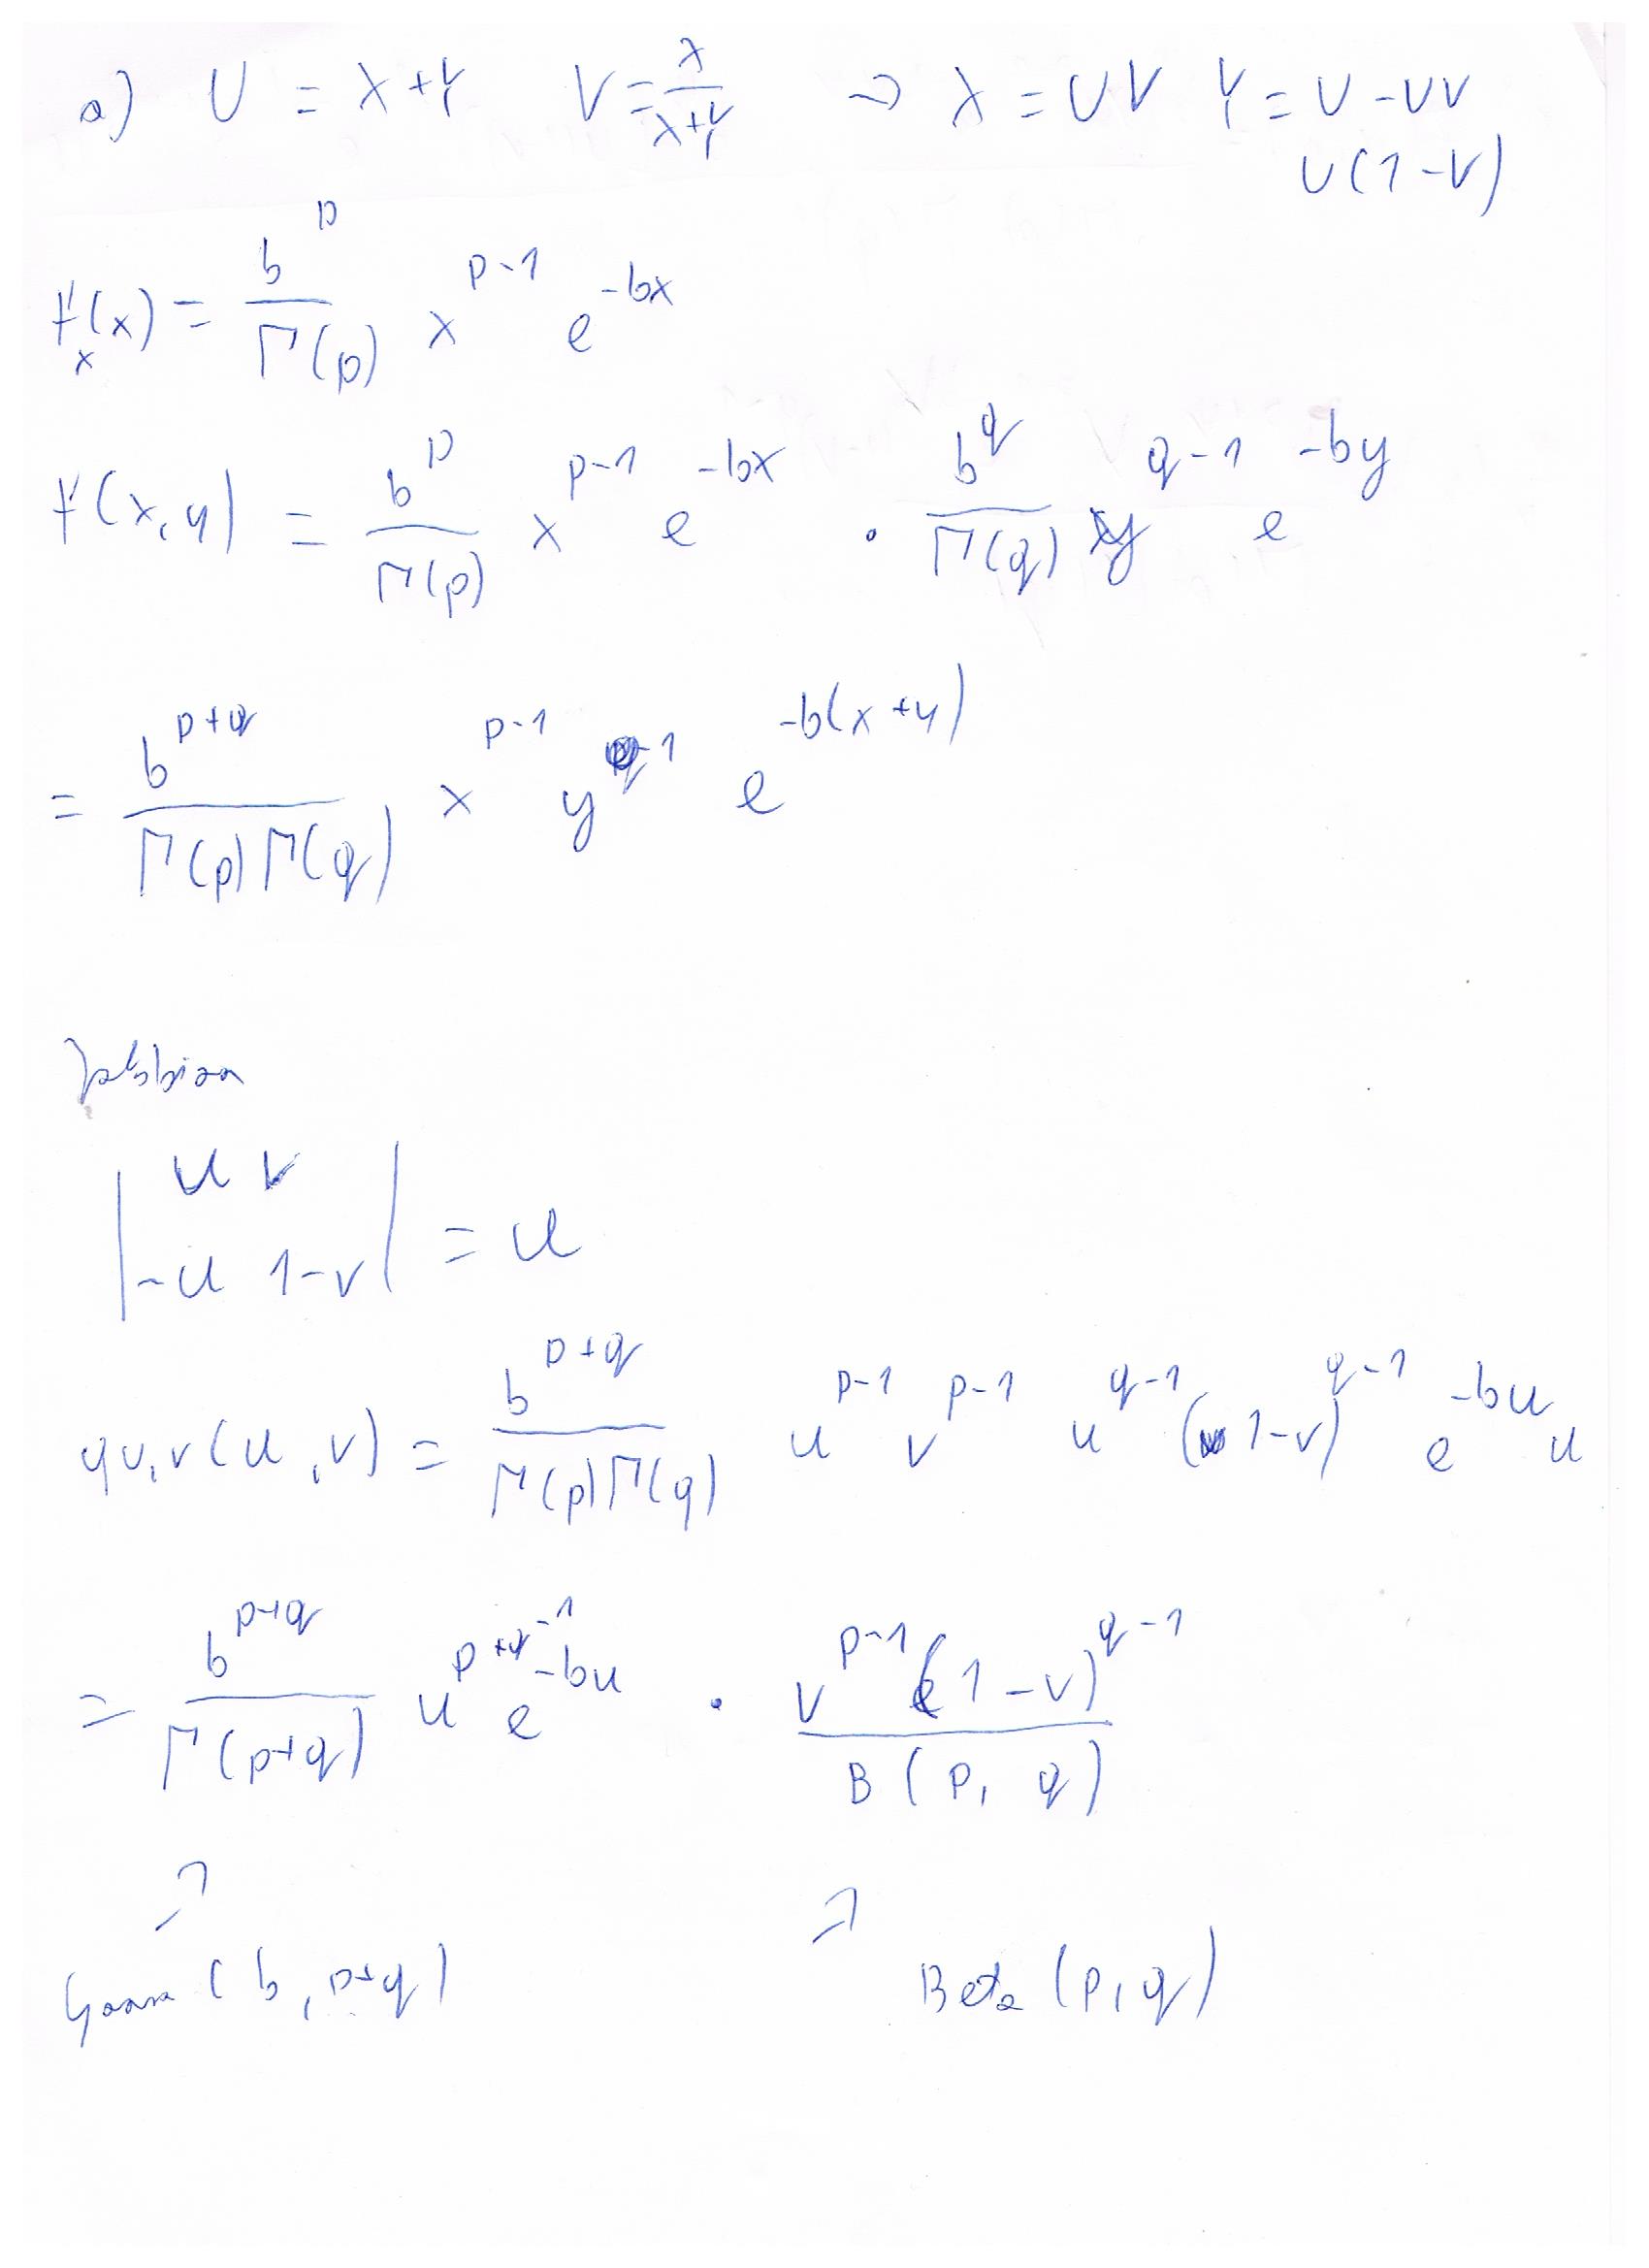 a) U = X+Y V = X/(X+Y) → X = UV Y = U - UV
U(1-V)
f_X(x) = b^p/Γ(p) x^(p-1) e^(-bx)
f(x,y) = b^p/Γ(p) x^(p-1) e^(-bx) · b^q/Γ(q) y^(q-1) e^(-by)
= b^(p+q)/(Γ(p)Γ(q)) x^(p-1) y^(q-1) e^(-b(x+y))
| u v |
| -u 1-v | = u
g_U,V(u,v) = b^(p+q)/(Γ(p)Γ(q)) u^(p-1) v^(p-1) u^(q-1) (1-v)^(q-1) e^(-bu) u
= b^(p+q)/Γ(p+q) u^(p+q-1) e^(-bu) · v^(p-1) (1-v)^(q-1)/B(p, q)
(b, p+q) Beta (p,q)